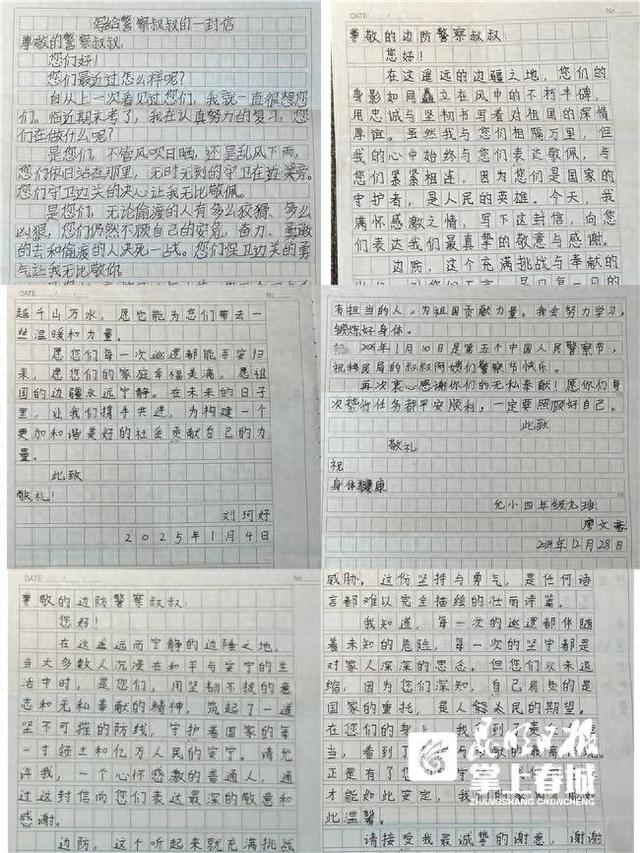 写给警察叔叔的一封信
尊敬的警察叔叔:
您们好!
您们最近过怎么样呢?
自从上一次看见过您们,我就一直很想您
们。临近期末考了,我在认真努力的复习,您
们在做什么呢?
是您们,不管风吹日晒,还是乱风下雨,
您们依旧站在那里,无时无刻的守卫在边关旁。
您们守卫边关的决心让我无比敬佩。
是您们,无论偷渡的人有多么狡猾、多么
凶狠,您们仍然不顾自己的安危,奋力、勇敢
的去和偷渡的人决死一战。您们保卫边关的勇
气让我无比敬佩
DATE:
No
尊敬的边防警察叔叔:
您好!
在这遥远的边疆之地,您们的
身影如同矗立在风中的不朽丰碑,
用忠诚与坚韧书写着对祖国的深情
厚谊。虽然我与您们相隔万里,但
我的心中始终与您们表达敬佩,与
您们紧紧相连,因为您们是国家的
守护者,是人民的英雄。今天,我
满怀感激之情,写下这封信,向您
们表达我们最真挚的敬意与感谢。
边防,这个充满挑战与奉献的
DATE
No
越千山万水,愿也能为您们带去一
丝温暖和力量。
愿您们每一次巡逻都能平安归
来,愿您们的家庭幸福美满,愿祖
国的边疆永远宁静。在未来的日子
里,让我们携手共进,为构建一个
更加和谐美好的社会贡献自己的力
量。
此致
敬礼!
刘珂妤
2025年1月4日
有担当的人,为祖国贡献力量。我会努力学习,
锻炼好身体。
2025年1月10日是第五个中国人民警察节,
祝移民局的叔叔阿姨们警察节快乐。
再次衷心感谢你们的无私奉献!愿你们每
次执行任务都平安顺利,一定要照顾好自己。
此致
敬礼
祝
身体健康
小四年级九班
廖文
2024年12月28日
DATE
No
尊敬的边防警察叔叔:
您好!
在这遥远而宁静的边陲之地,
当大多数人沉浸在和平与安宁的生
活中时,是您们,用坚韧不拔的意
志和无私奉献的精神,筑起了一道
坚不可摧的防线,守护着国家的每
一寸领土和亿万人民的安宁。请允
许我,一个心怀感激的普通人,通
过这封信向您们表达最深的敬意和
感谢。
边防,这个听起来就充满挑战
威胁,这份坚持与勇气,是任何语
言都难以完全描绘的壮丽诗篇。
我知道,每一次的巡逻都伴随
着未知的危险,每一次的坚守都是
对家人深深的思念。但您们从未退
缩,因为您们深知,自己肩负的是
国家的重托,是人民的期望。
在您们的身上,我看到了
当,看到了
正是有了您
才能如此安定,我
此温馨。
请接受我最诚挚的谢意,谢谢
昆明日报
掌上春城
ZHANGSHANG CHUNCHENG